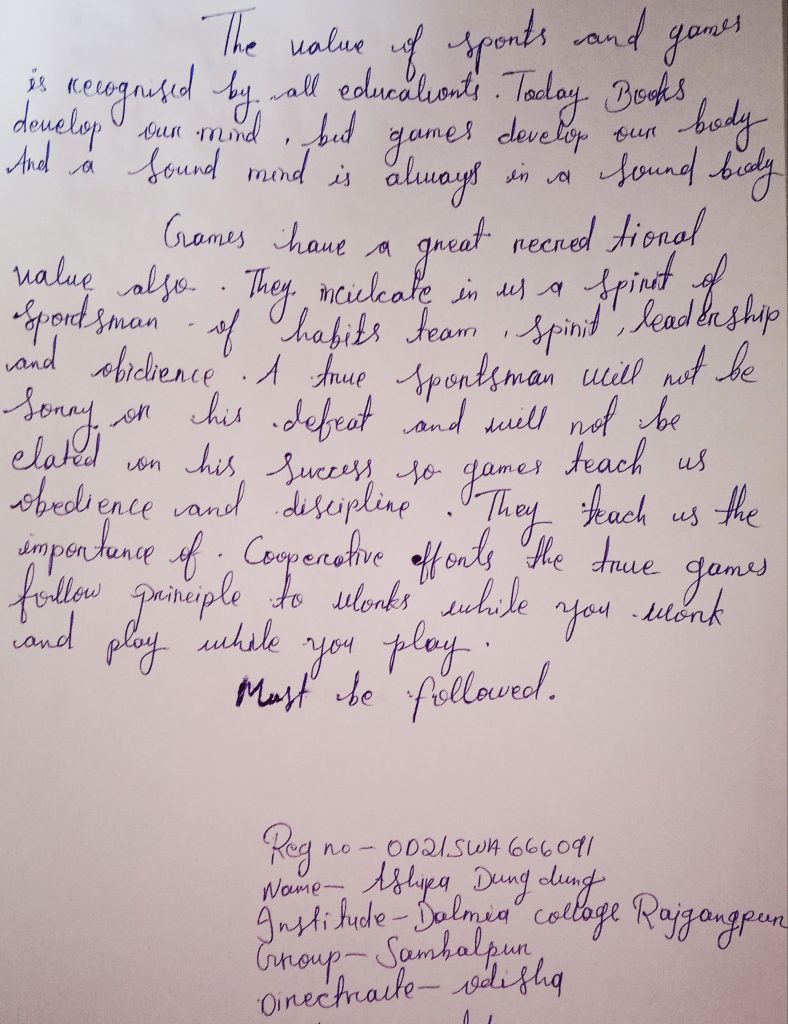 The value of sports and games
is recognised by all educationts. Today Books
develop our mind, but games develop our body
And a sound mind is always in a sound body
Games have a great recred tional
value also. They inculcate in us a spirit of
sportsman - of habits team, spirit, leadership
and obidience. A true sportsman will not be
sorry on his defeat and will not be
elated on his success so games teach us
obedience and discipline. They teach us the
importance of. Cooperative efforts the true games
follow principle to works while you work
and play while you play.
Must be followed.
Reg no - OD21SWA666091
Name - Dung dung
Institude - Dalmia collage Rajgangpur
Group - Sambalpur
Directraite - odisha